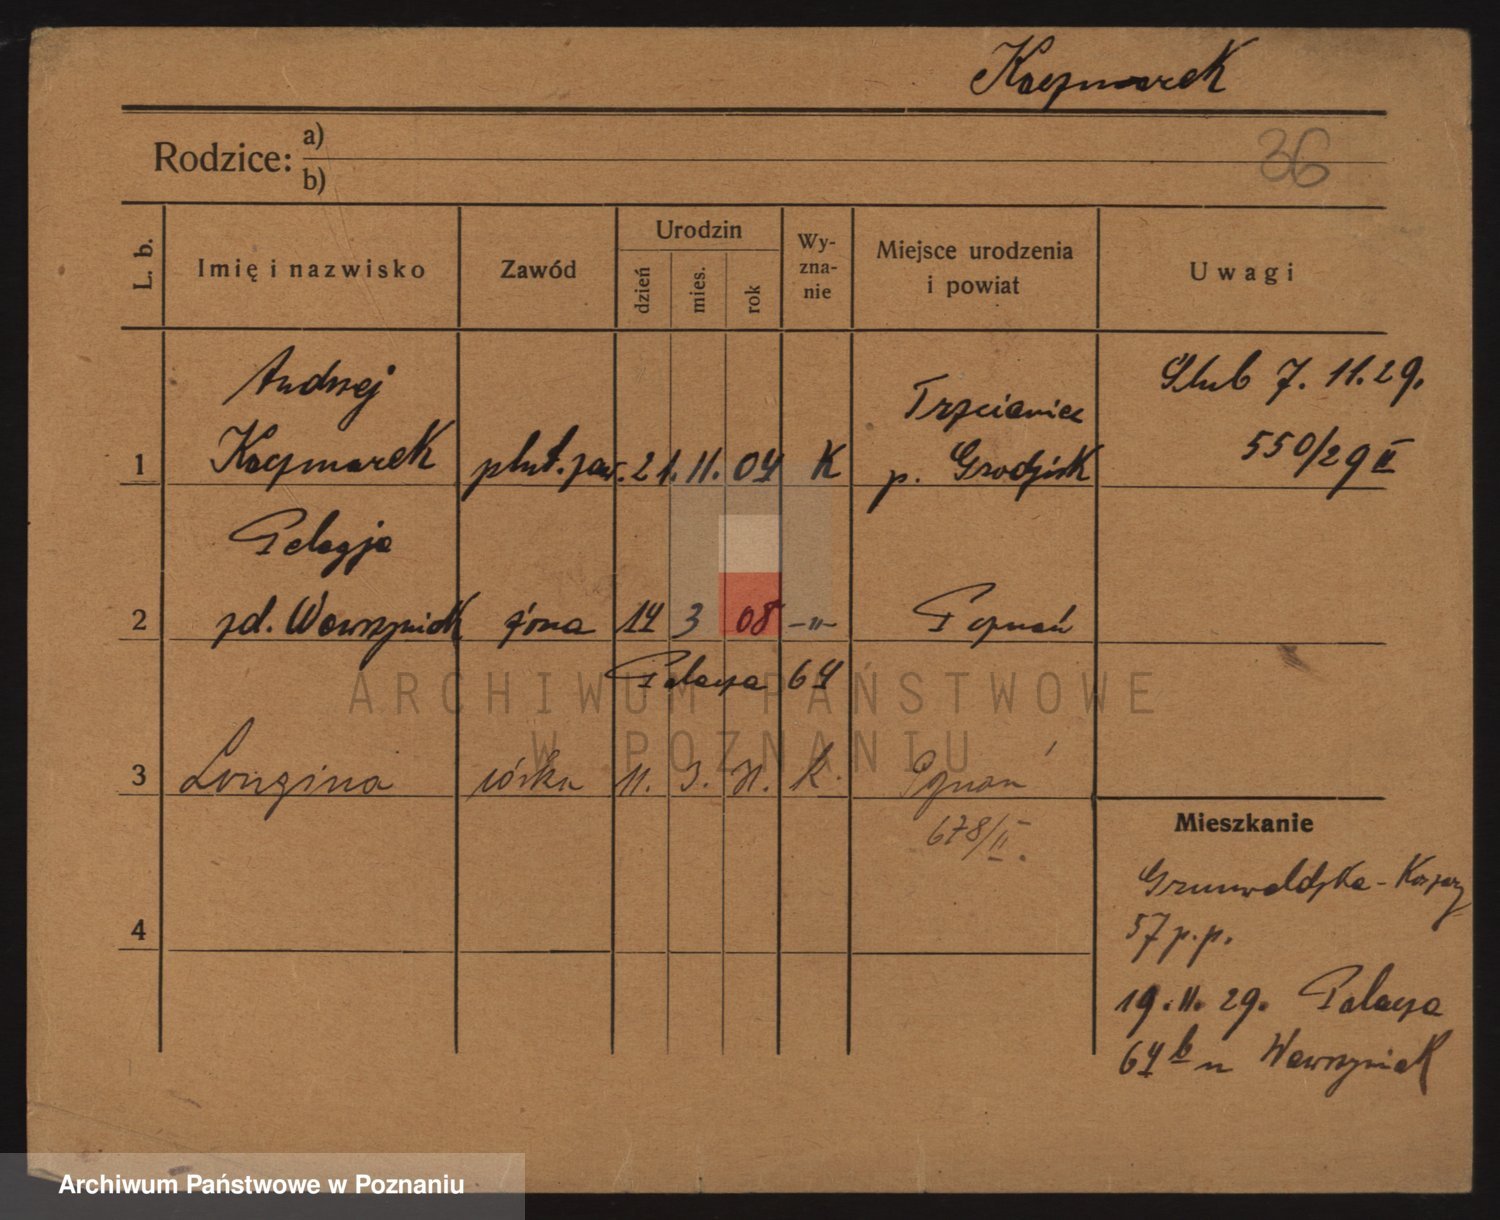 Kaczmarek
Rodzice: a)
b)
36
L. b.
Imię i nazwisko
Zawód
Urodzin
dzień
mies.
rok
Wy-
zna-
nie
Miejsce urodzenia
i powiat
Uwagi
Andrzej
Kaczmarek
1
plut. zaw.
21. 11. 04
K
Trzcianice
p. Grodzisk
Ślub 7. 11. 29.
550/29 II
Pelagja
2
zd. Wawrzyniak
żona
14
3
08
-"-
Poznań
Palacza 64
ARCHIWUM PAŃSTWOWE
W POZNANIU
3
Longina
córka
11. 3. 31.
k.
Poznań
678/II.
4
Mieszkanie
Grunwaldzka - Koszary
57 p.p.
19. 11. 29. Palacza
64 b u Wawrzyniak
Archiwum Państwowe w Poznaniu